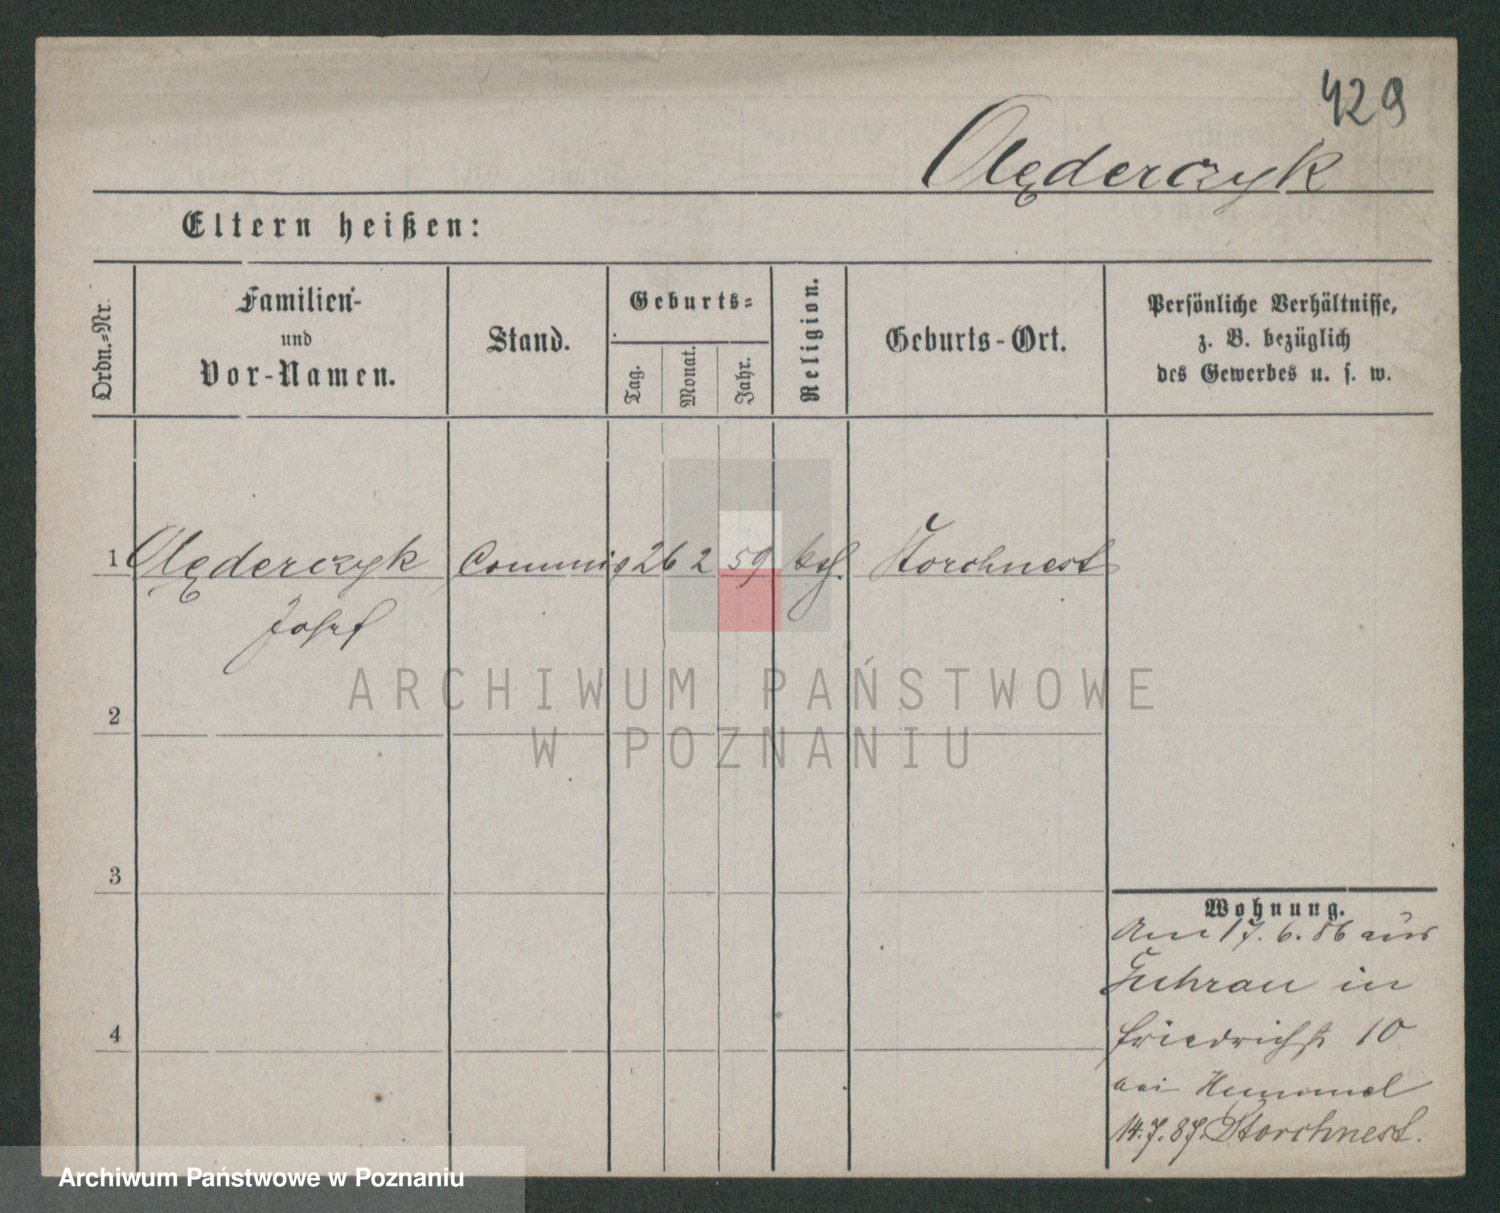 429
Olęderczyk
Eltern heißen:
Ordn.-Nr.
Familien-
und
Vor-Namen.
Stand.
Geburts-
Tag.
Monat.
Jahr.
Religion.
Geburts-Ort.
Persönliche Verhältnisse,
z. B. bezüglich
des Gewerbes u. s. w.
1 Olęderczyk Commis 26 2 59 kth. Storchnest
Josef
ARCHIWUM PAŃSTWOWE
W POZNANIU
2
3
4
Wohnung.
Am 17.6.86 aus
Guhrau in
Friedrichst 10
bei Hummel
14.7.87. Storchnest.
Archiwum Państwowe w Poznaniu